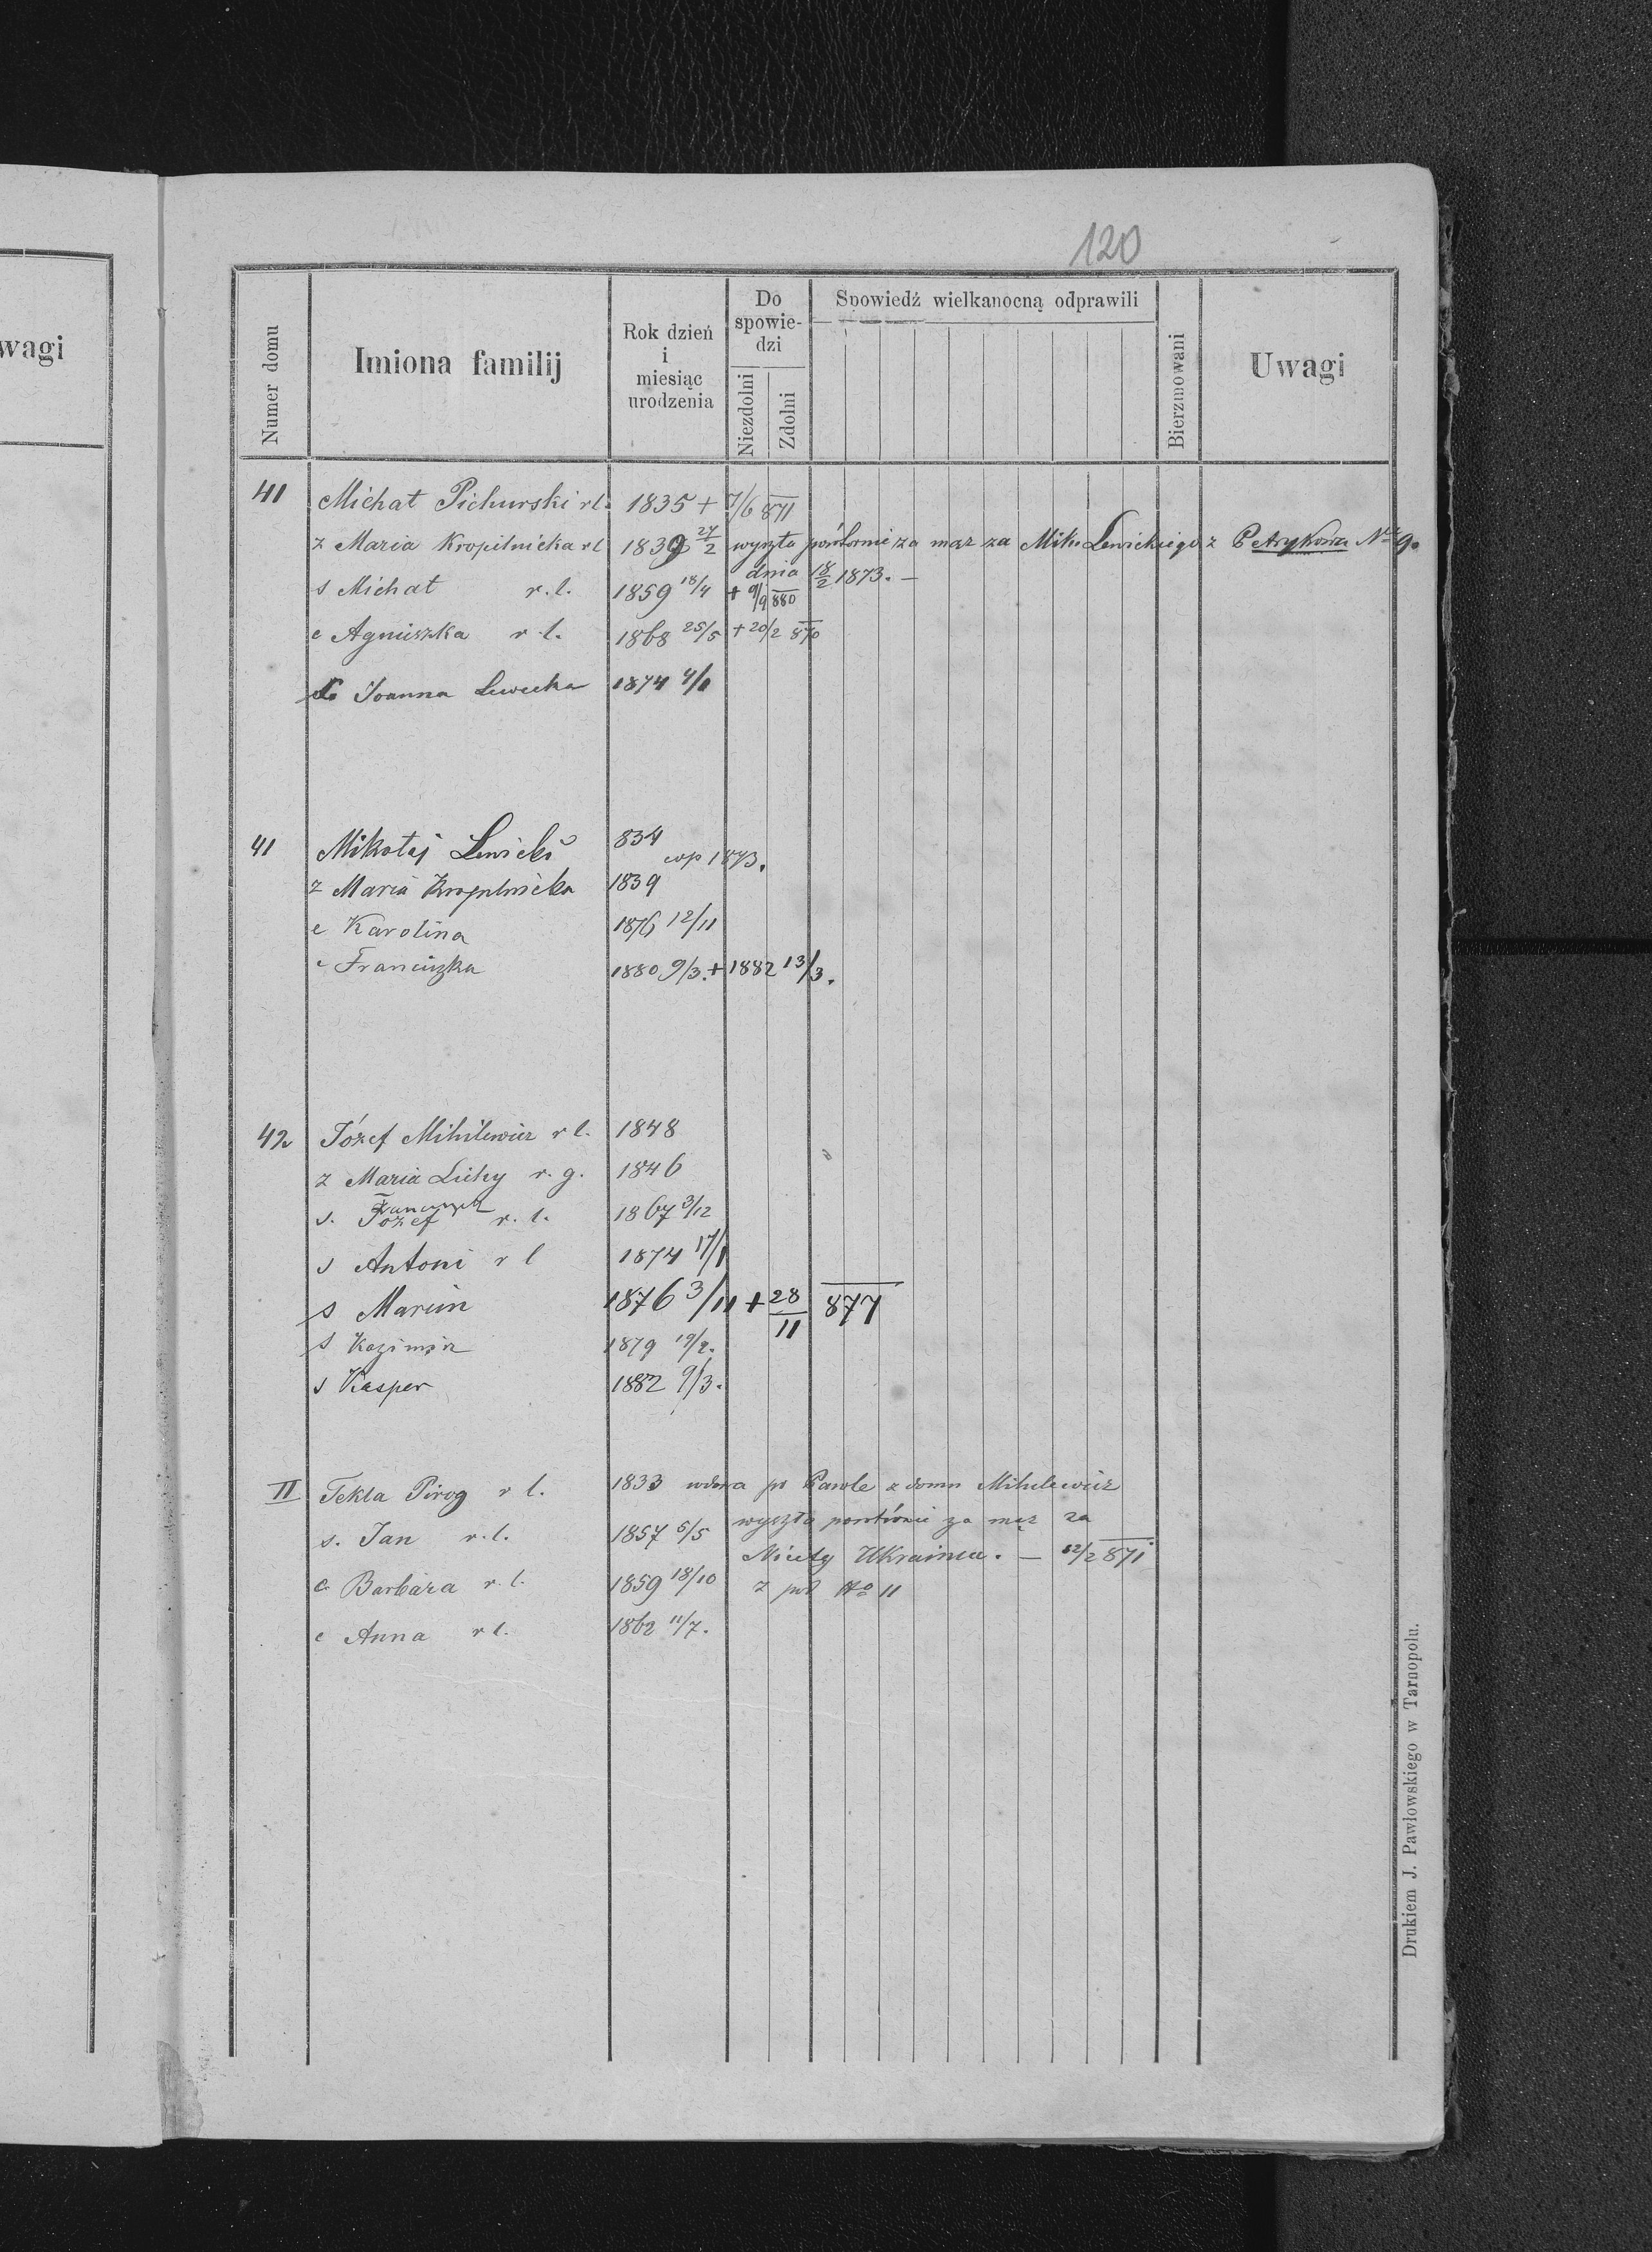 wagi
120
Numer domu
Imiona familij
Rok dzień i miesiąc urodzenia
Do spowiedzi
Niezdolni
Zdolni
Spowiedź wielkanocną odprawili
Bierzmowani
Uwagi
41 Michał Pichurski rl. 1835 + 7/6 871
z Maria Kropilnicka rl 1839 27/2 wyszła powtórnie za mąż za Mik. Lewickiego z Petrykowa No 9.
dnia 18/2 1873. —
s Michał r.l. 1859 18/4 + 9/9 880
c Agnieszka r.l. 1868 25/5 + 20/2 870
Joanna Lewicka 1874 4/1
41 Mikołaj Lewicki 834
cop 1873.
z Maria Kropilnicka 1839
c Karolina 1876 12/11
c Franciszka 1880 9/3. + 1882 13/3.
42 Józef Mihilewicz rl. 1848
z Maria Lichy r.g. 1846
Franciszek
s. Józef r.l. 1867 3/12
s Antoni rl 1874 17/1
s Marcin 1876 3/11 + 28/11 877
s Kazimirz 1879 19/2.
s Kasper 1882 9/3.
II Tekla Pirog rl. 1833 wdowa po Pawle z domu Mihilewicz
wyszła powtórnie za mąż za
s. Jan r.l. 1857 5/5
Nicety Ukrainca. — 12/2 871
c Barbara r.l. 1859 18/10 z pod No 11
c Anna rl. 1862 11/7.
Drukiem J. Pawłowskiego w Tarnopolu.